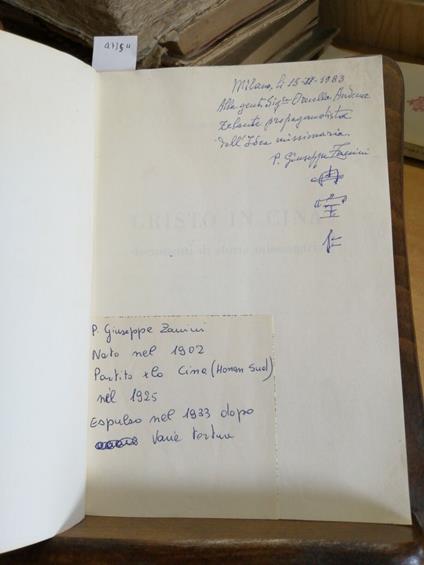 Milano, li 15-II-1983
Alla gent. Sig.ra Ornella
zelante propagandista
dell'Idea missionaria.
P. Giuseppe Zanini
CRISTO IN CINA
P. Giuseppe Zanini
Nato nel 1902
Partito x la Cina (Honan Sud)
nel 1925
Espulso nel 1933 dopo
varie torture